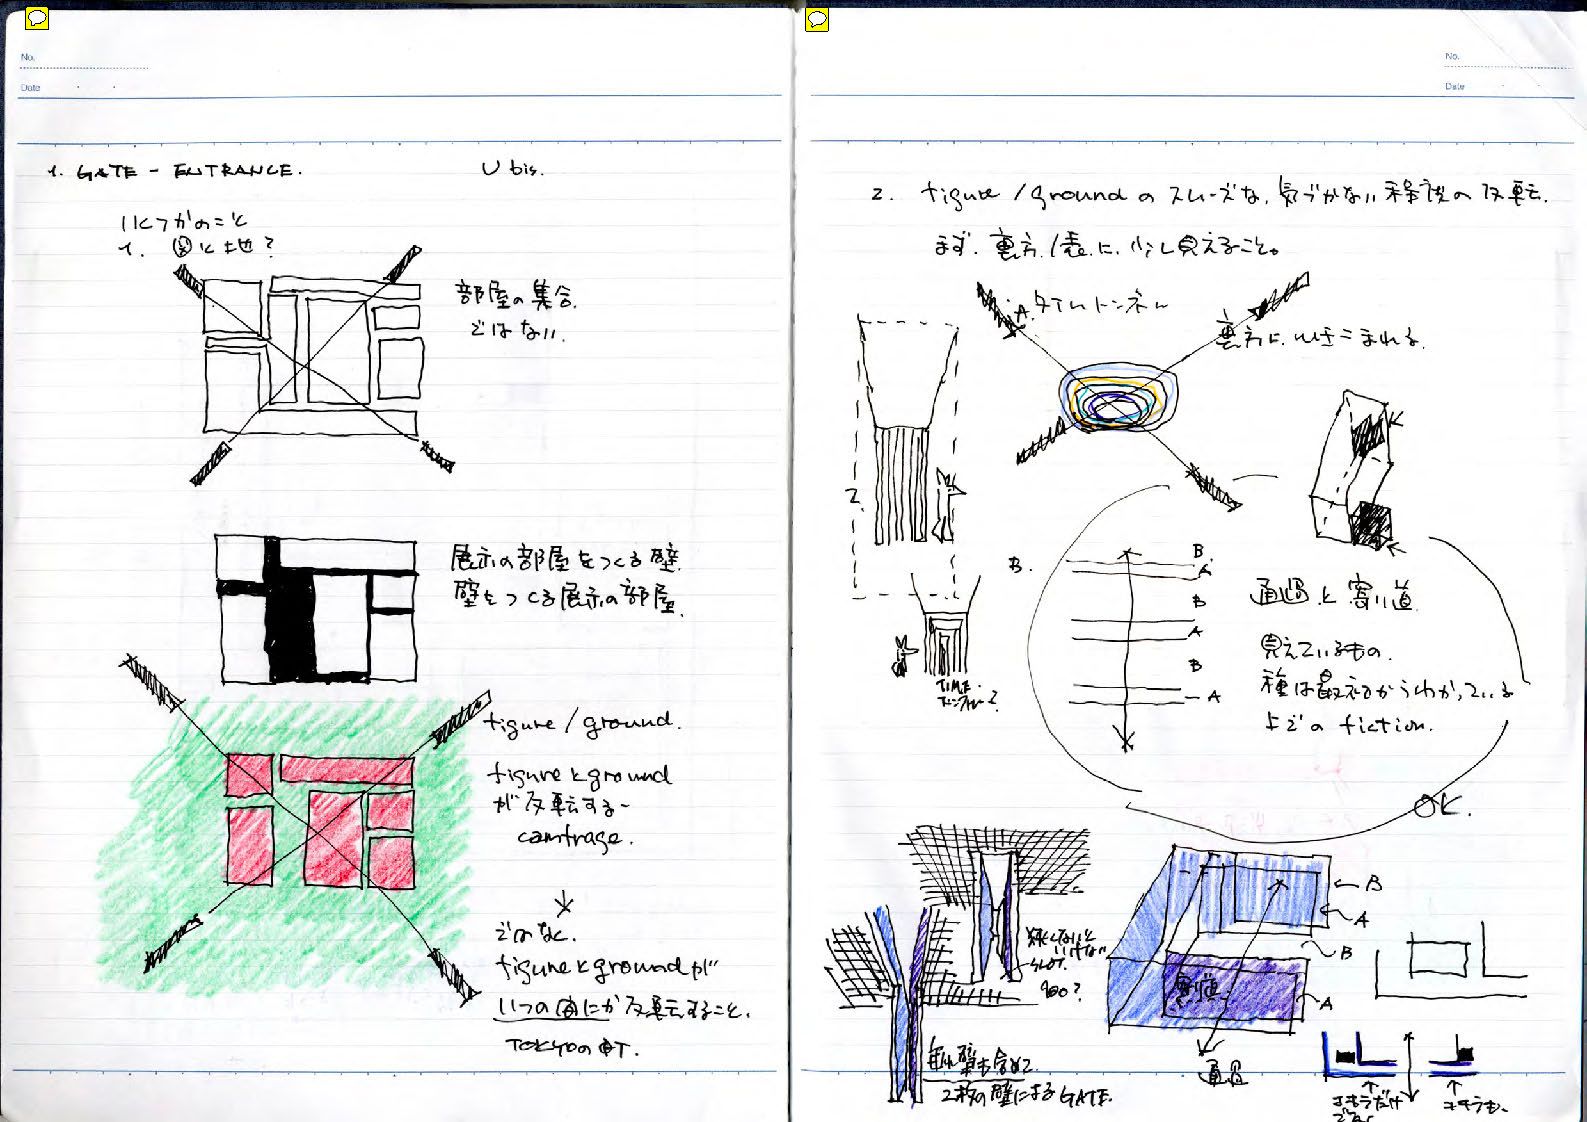 No.
Date
1. GATE - ENTRANCE.
U bis.
いくつかのこと
1. 図と地?
部屋の集合
ではない.
展示の部屋をつくる壁.
壁をつくる展示の部屋.
figure / ground.
figureとground
が反転する-
camtrage.
ではなく.
figureとgroundが
いつの間にか反転すること.
TOKYOの
No.
Date
2. figure / groundのスムーズな,気づかない程度の反転.
まず.裏方/表に.少し見えること。
A.タイムトンネル
裏方に.ひきこまれる.
2.
TIME.
B.
B
A
B
A
B
A
通過と寄り道
見えているもの.
種は最初からわかっている
上でのfiction.
OK.
狭くしないと
いけない
SLOT.
900?
B
A
B
A
通過
2枚の壁によるGATE.